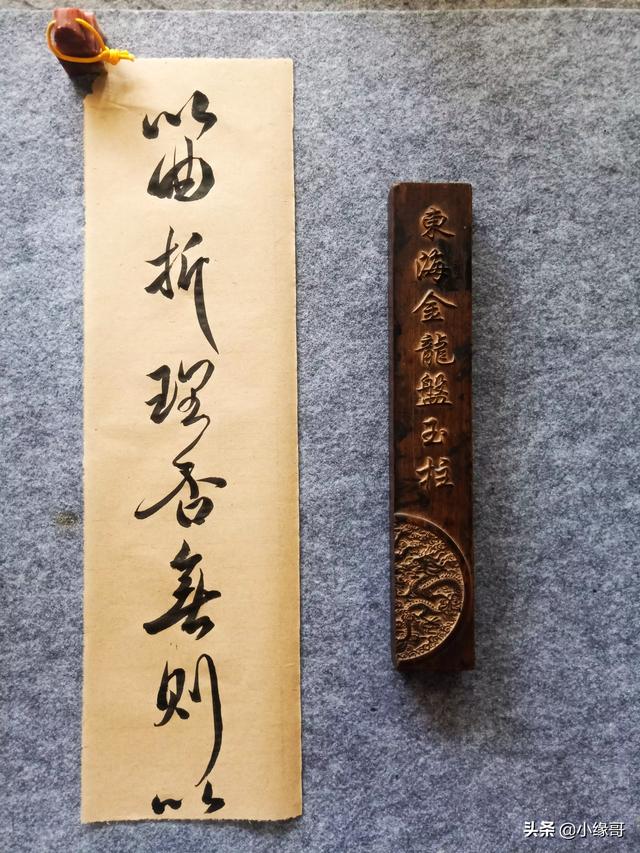 以曲折理否無則以
東海金龍盤玉柱
头条 @小缘哥